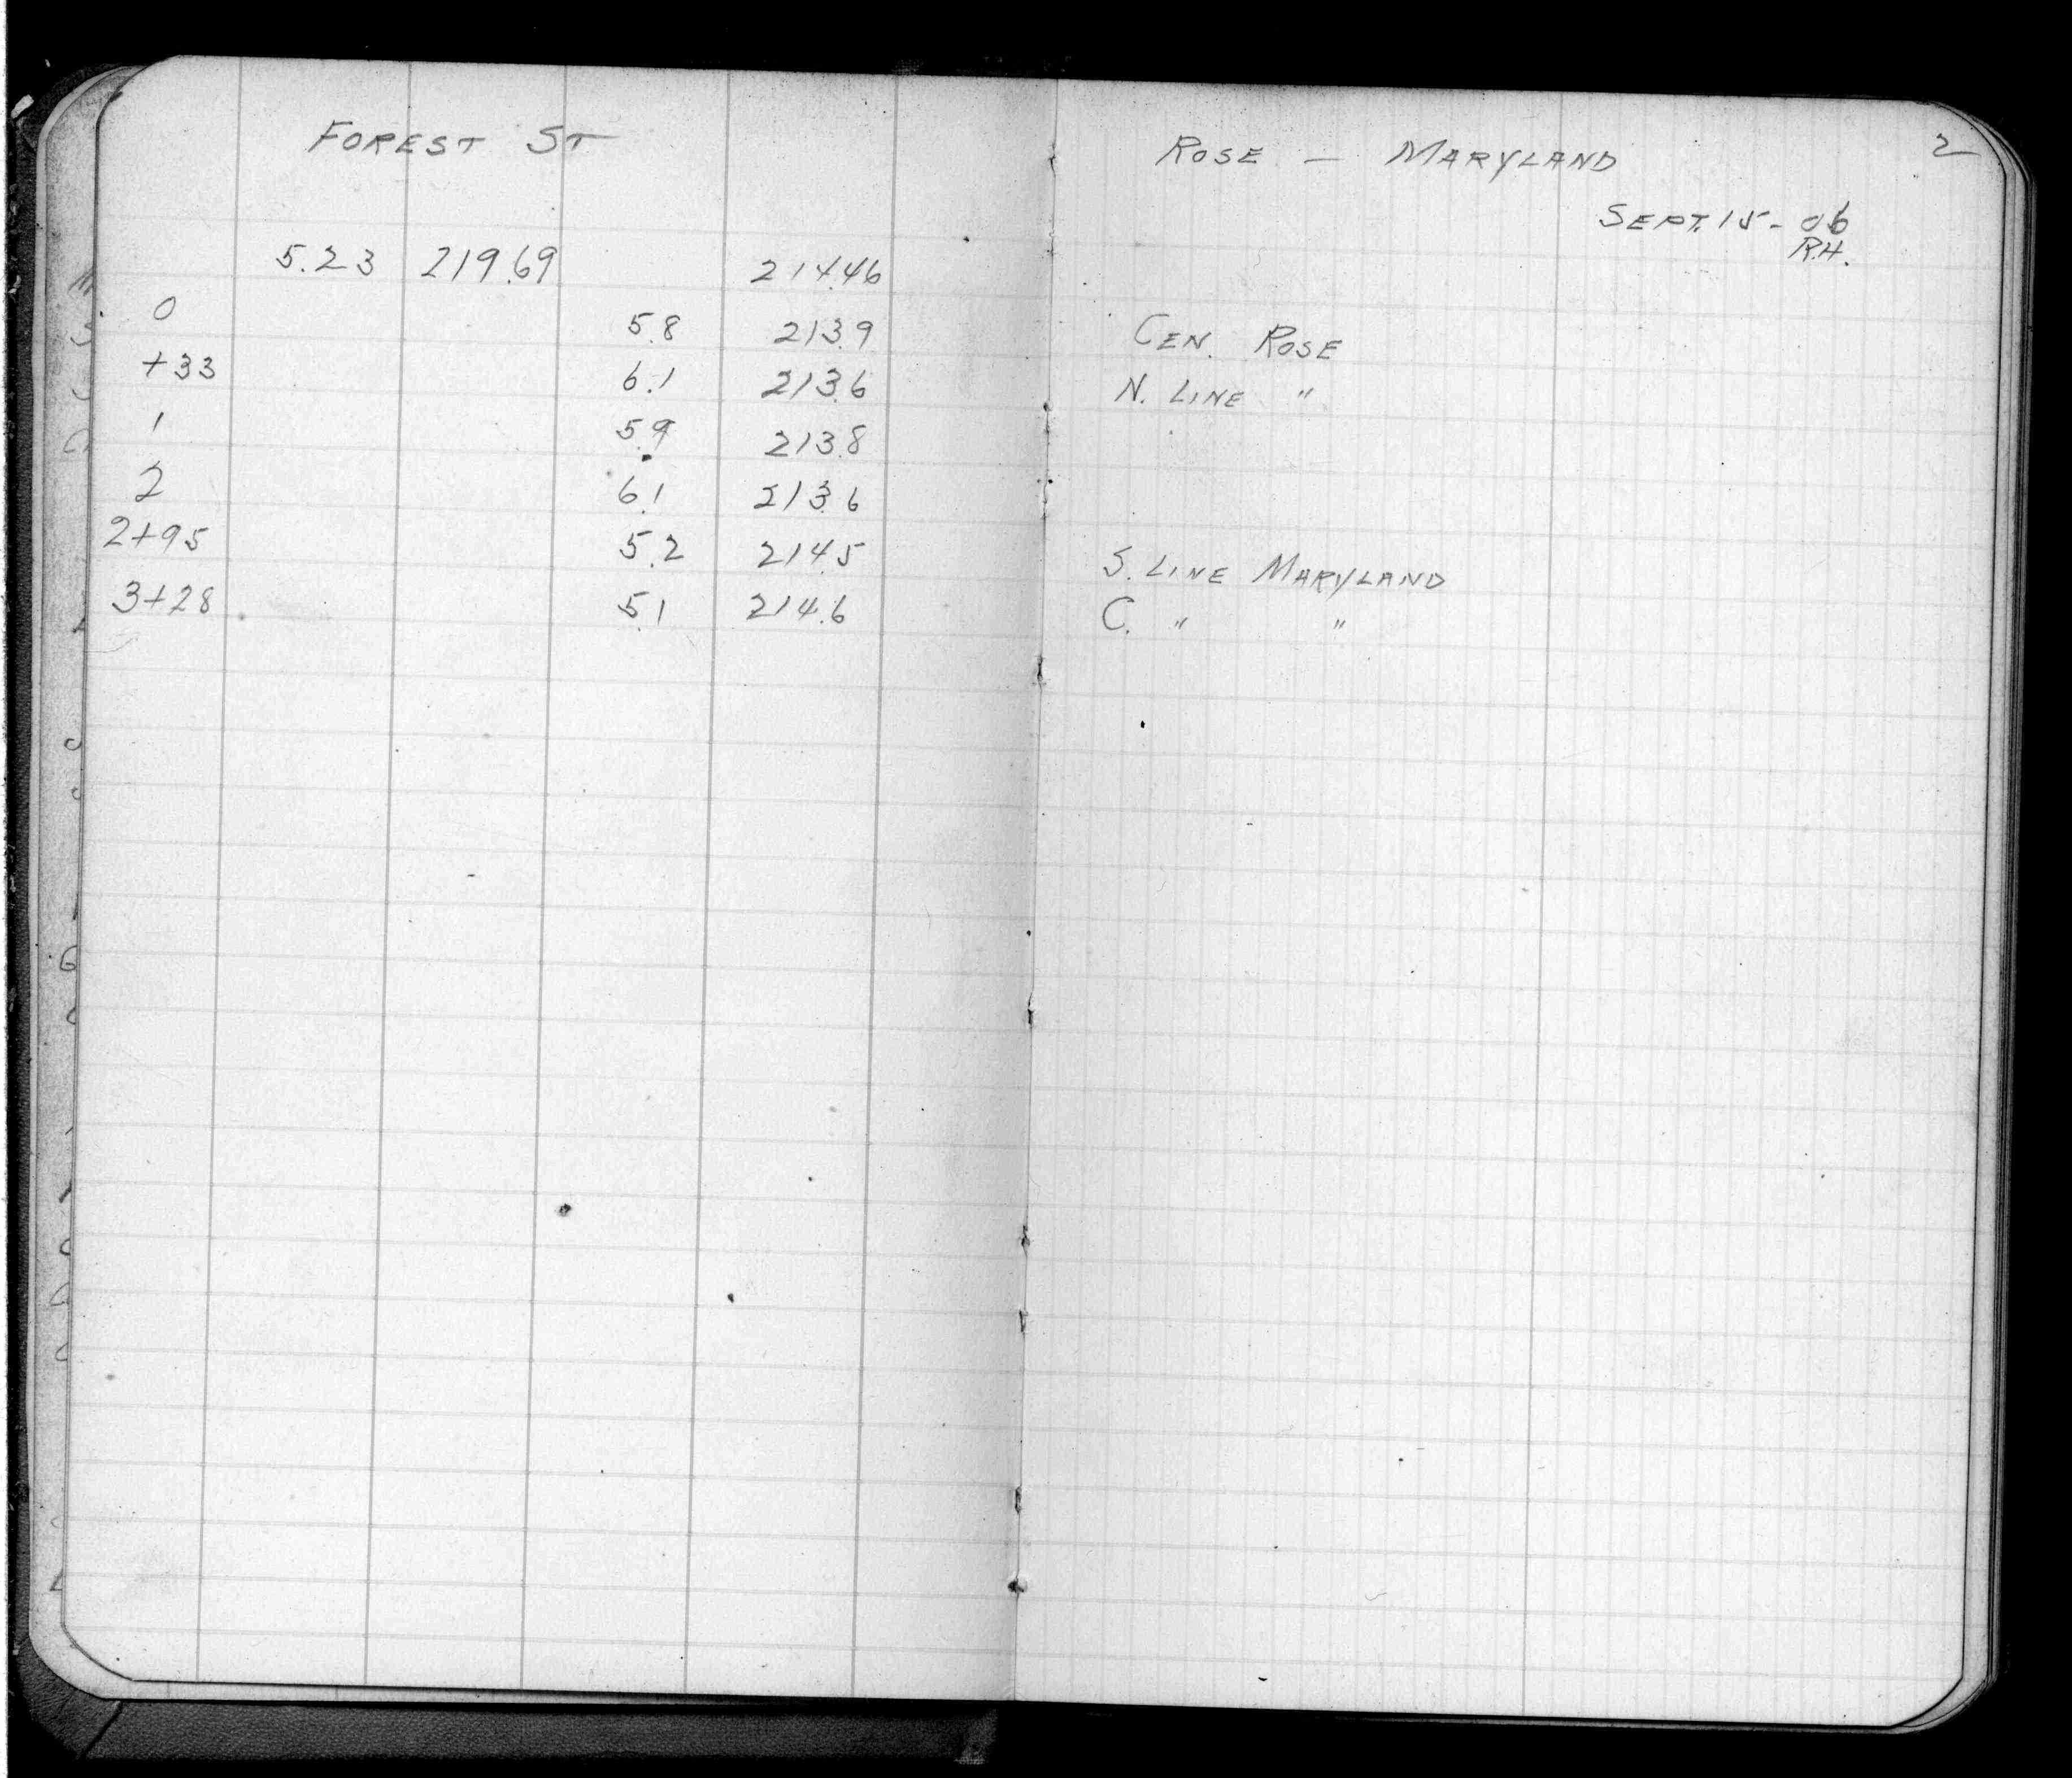 FOREST ST
5.23 219.69 214.46
0 5.8 213.9
+33 6.1 213.6
1 5.9 213.8
2 6.1 213.6
2+95 5.2 214.5
3+28 5.1 214.6
ROSE — MARYLAND 2
SEPT. 15 - 06
R.H.
CEN. ROSE
N. LINE "
S. LINE MARYLAND
C. " "